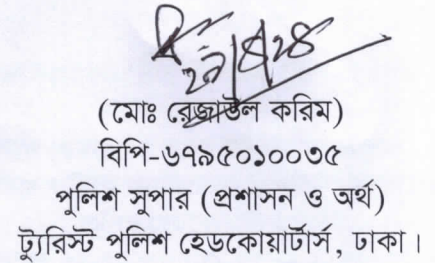 (মোঃ রেজাউল করিম)
বিপি-৬৭৯৫০১০০৩৫
পুলিশ সুপার (প্রশাসন ও অর্থ)
ট্যুরিস্ট পুলিশ হেডকোয়ার্টার্স, ঢাকা।